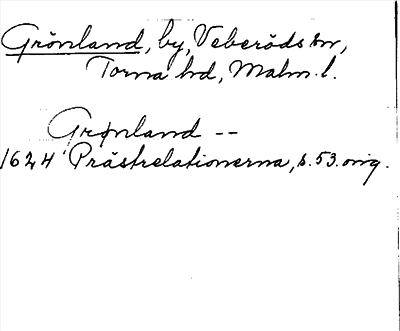 Grönland, by, Veberöds sn,
Torna hd, Malm. l.
Grønland --
1624 Prästrelationerna, s. 53. orig.